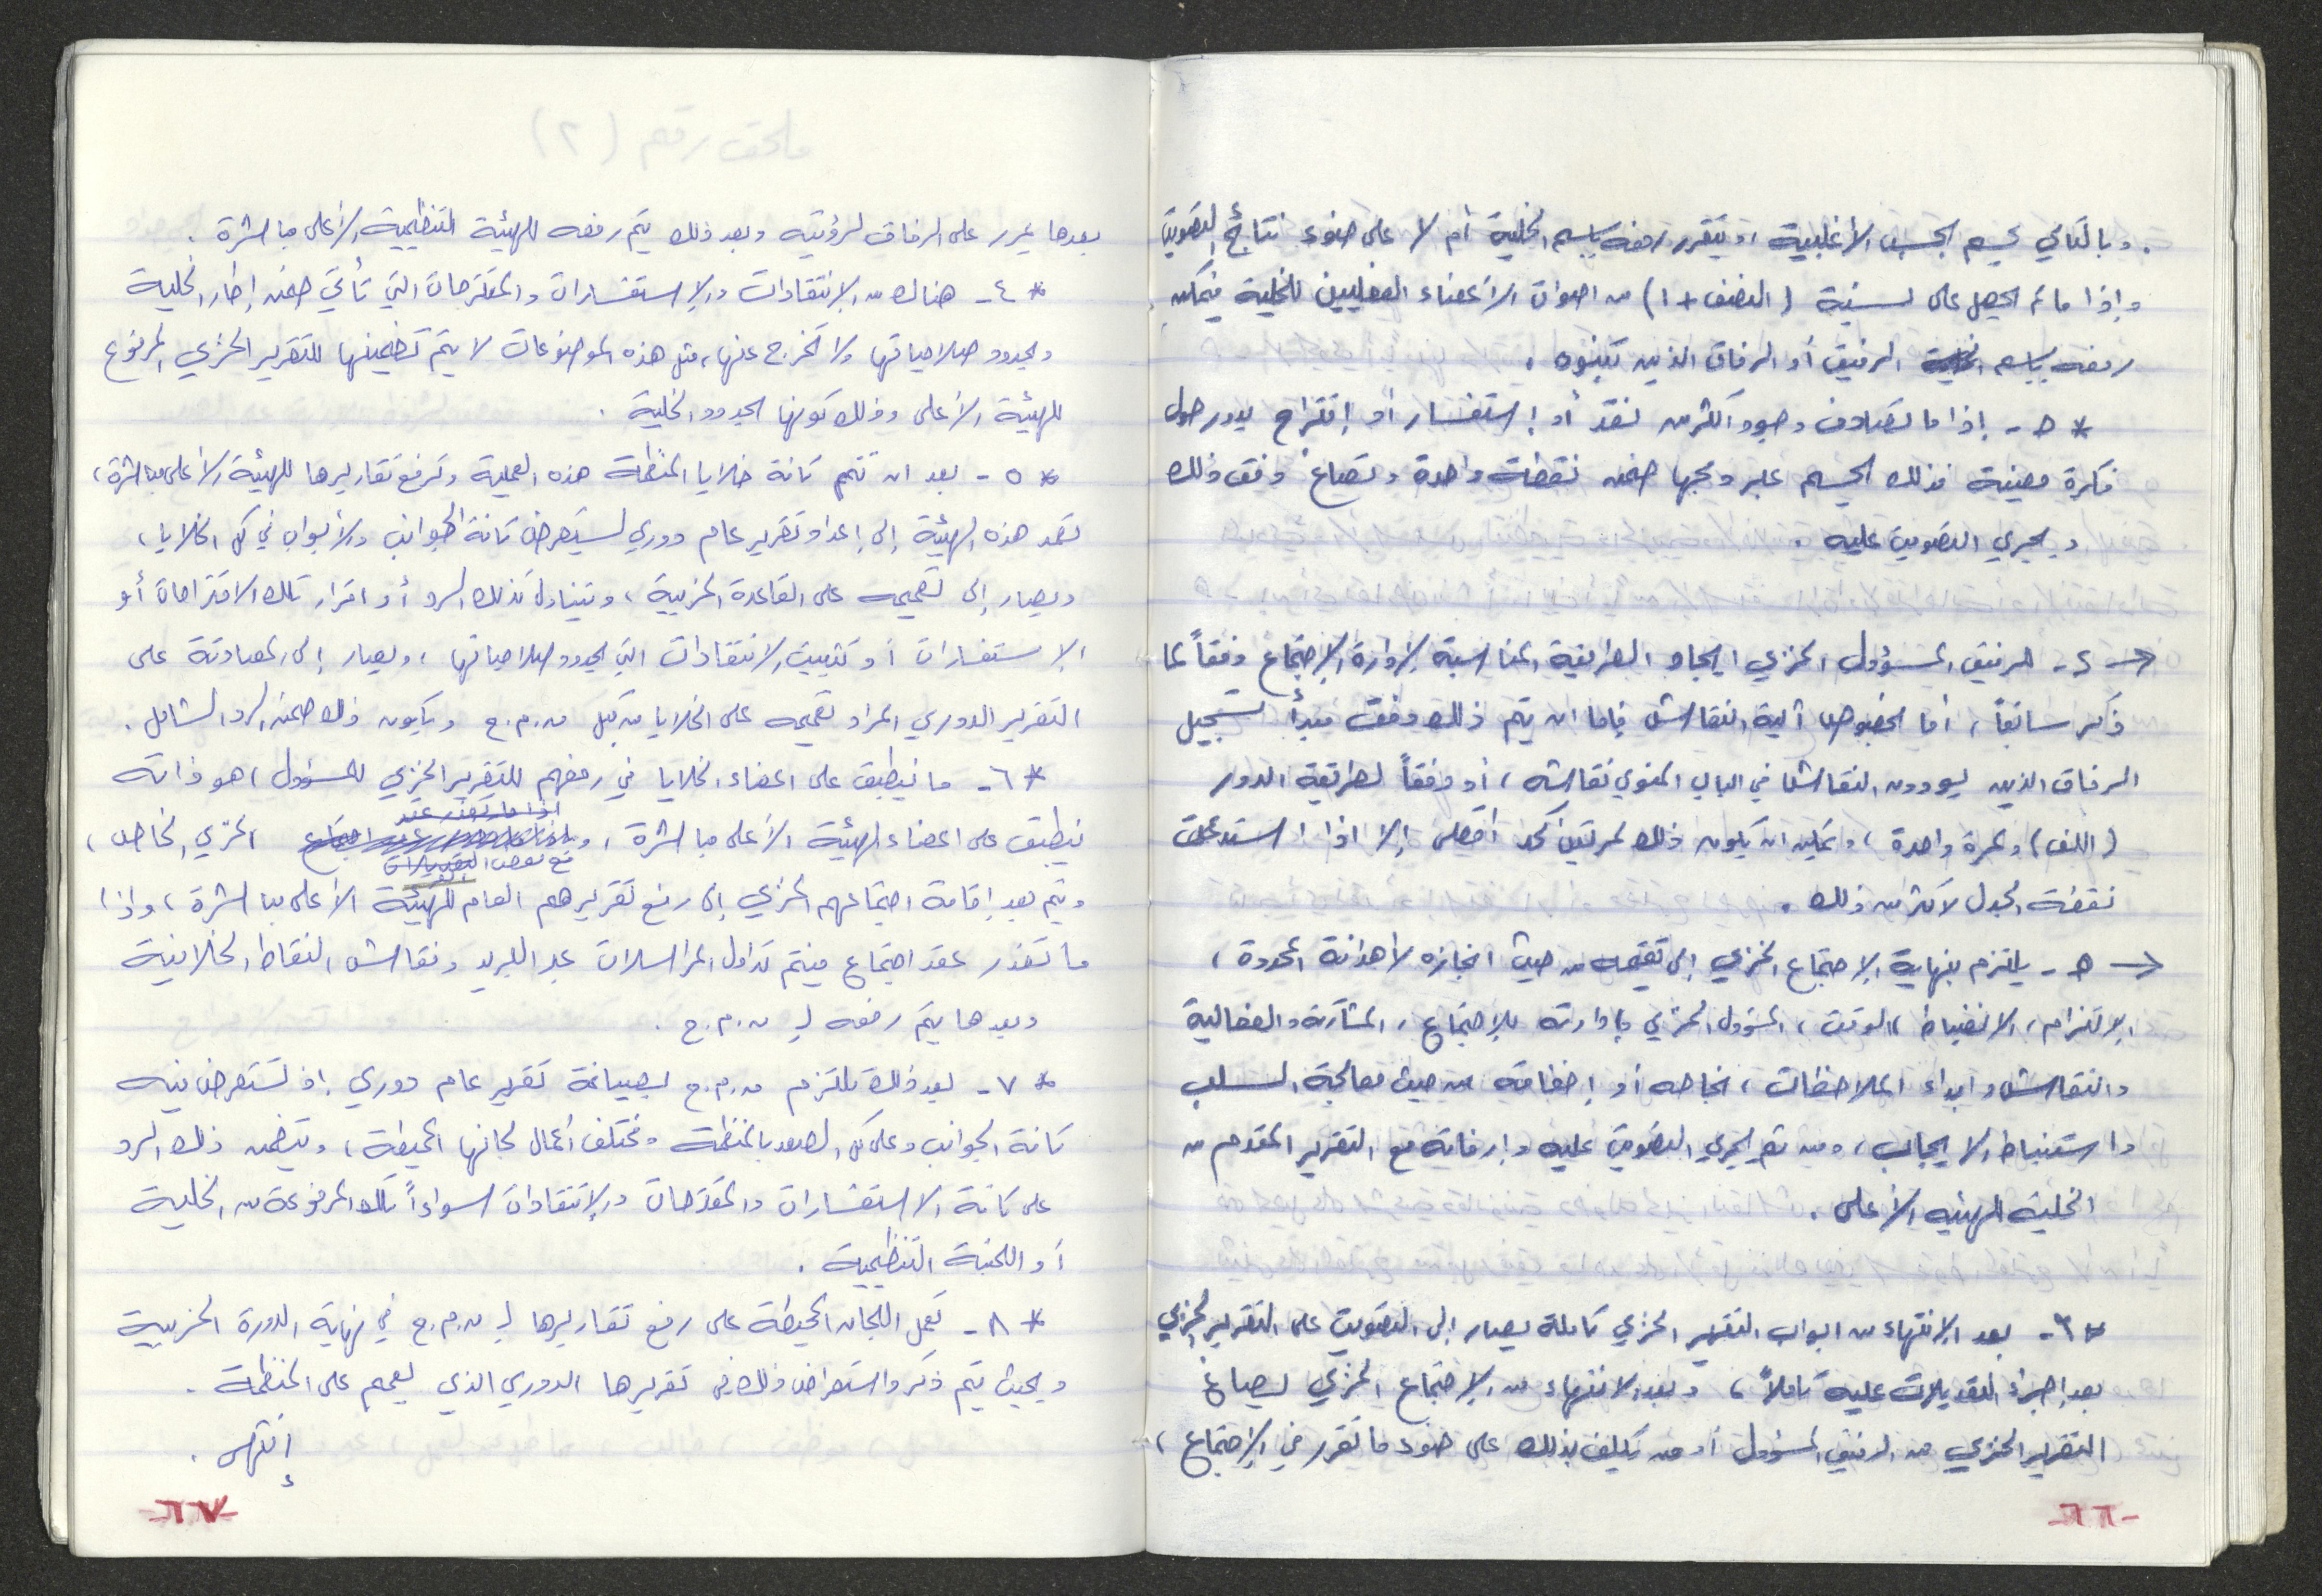 . وبالتالي يحسم بحسب الأغلبية ، ويتقرر رفعه باسم الخلية أم لا على ضوء نتائج التصويت
وإذا ما تم الحصول على نسبة (النصف + ١) من اصوات الأعضاء الفعليين للخلية فيمكن
رفعه باسم الرفيق أو الرفاق الذين تبنوه .
* ح - إذا ما تصادف وجود أكثر من نقد أو إستفسار أو إقتراح يدور حول
فكرة معينة فذلك يحسم عبر دمجها ضمن نقطة واحدة وتصاغ وفق ذلك
ويجري التصويت عليه .
← ٤ - للرفيق المسؤول الحزبي ايجاد الطريقة المناسبة لإدارة الإجتماع وفقاً لما
ذكر سابقاً ، أما بخصوص آلية النقاش فإما ان يتم ذلك وفق مبدأ تسجيل
الرفاق الذين يودون النقاش في الباب المنوي نقاشه ، أو وفقاً لطريقة الدور
(اللف) ولمرة واحدة ، ويمكن ان يكون ذلك لمرتين كحد أقصى إلا اذا استدعت
نقطة الجدل لاكثر من ذلك .
← ٥ - يلتزم بنهاية الإجتماع الحزبي إلى تقييمه من حيث انجازه لأهدافه المحددة ،
الإلتزام ، الانضباط ، الوقت ، المسؤول الحزبي وإدارته للإجتماع ، المشاركة والفعالية
والنقاش وابداء الملاحظات ، نجاحه أو إخفاقه من حيث معالجة السلب
واستنباط الايجاب ، ومن ثم يجري التصويت عليه وإرفاقه مع التقرير المقدم من
الخلية للهيئة الأعلى .
* ٣ - بعد الإنتهاء من ابواب التقرير الحزبي كاملة يصار إلى التصويت على التقرير الحزبي
بعد إجراء التعديلات عليه كاملاً ، وبعد الانتهاء من الإجتماع الحزبي يصاغ
التقرير الحزبي من الرفيق المسؤول أو من يكلف بذلك على ضوء ما تقرر في الإجتماع ،
-٦٦-
بعدها يمرر على الرفاق لرؤيته وبعد ذلك يتم رفعه للهيئة التنظيمية الأعلى مباشرة .
* ٤ - هنالك من الإنتقادات والإستفسارات والمقترحات التي تأتي ضمن إطار الخلية
وبحدود صلاحياتها ولا تخرج عنها ، مثل هذه الموضوعات لا يتم تضمينها للتقرير الحزبي المرفوع
للهيئة الأعلى وذلك كونها بحدود الخلية .
* ٥ - بعد ان تتم كافة خلايا المنظمة هذه العملية وترفع تقاريرها للهيئة الأعلى مباشرة ،
تعمد هذه الهيئة إلى إعداد تقرير عام دوري يستعرض كافة الجوانب والأبواب في كل الخلايا ،
ويصار إلى تعميمه على القاعدة الحزبية ، ويتناول كذلك الرد أو اقرار تلك الاقتراحات أو
الإستفسارات أو تثبيت الانتقادات التي بحدود صلاحياتها ، ويصار إلى المصادقة على
التقرير الدوري المراد تعميمه على الخلايا من قبل م.م.ح ويكون ذلك ضمن الرد الشامل .
* ٦ - ما ينطبق على اعضاء الخلايا في رفعهم للتقرير الحزبي للمسؤول ، هو ذاته
ينطبق على اعضاء الهيئة الأعلى مباشرة ، و مع بعض التعديلات الحزبي الخاص ،
ويتم بعد إقامة اجتماعهم الحزبي إلى رفع تقريرهم العام للهيئة الأعلى مباشرة ، وإذا
ما تعذر عقد اجتماع فيتم تداول المراسلات عبر البريد ونقاش النقاط الخلافية
وبعدها يتم رفعه لـ م.م.ح .
* ٧ - بعد ذلك تلتزم م.م.ح بصياغة تقرير عام دوري ، إذ تستعرض فيه
كافة الجوانب وعلى كل الصعد بالمنظمة ومختلف أعمال لجانها المحيطة ، ويتضمن ذلك الرد
على كافة الاستفسارات والمقترحات والإنتقادات سواءاً تلك المرفوعة من الخلية
أو اللجنة التنظيمية .
* ٨ - تعمل اللجان المحيطة على رفع تقاريرها لـ م.م.ح في نهاية الدورة الحزبية
وبحيث يتم ذكر واستعراض ذلك في تقريرها الدوري الذي يعمم على المنظمة .
إنتهى .
-٦٧-
ملحق رقم (٢)